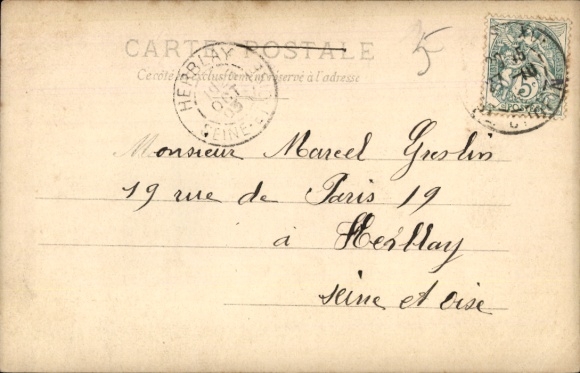 CARTE POSTALE
Ce côté est exclusivement réservé à l'adresse
5
HERBLAY
OCT
03
SEINE-
5
Monsieur Marcel Greslin
19 rue de Paris 19
à Herblay
Seine et Oise